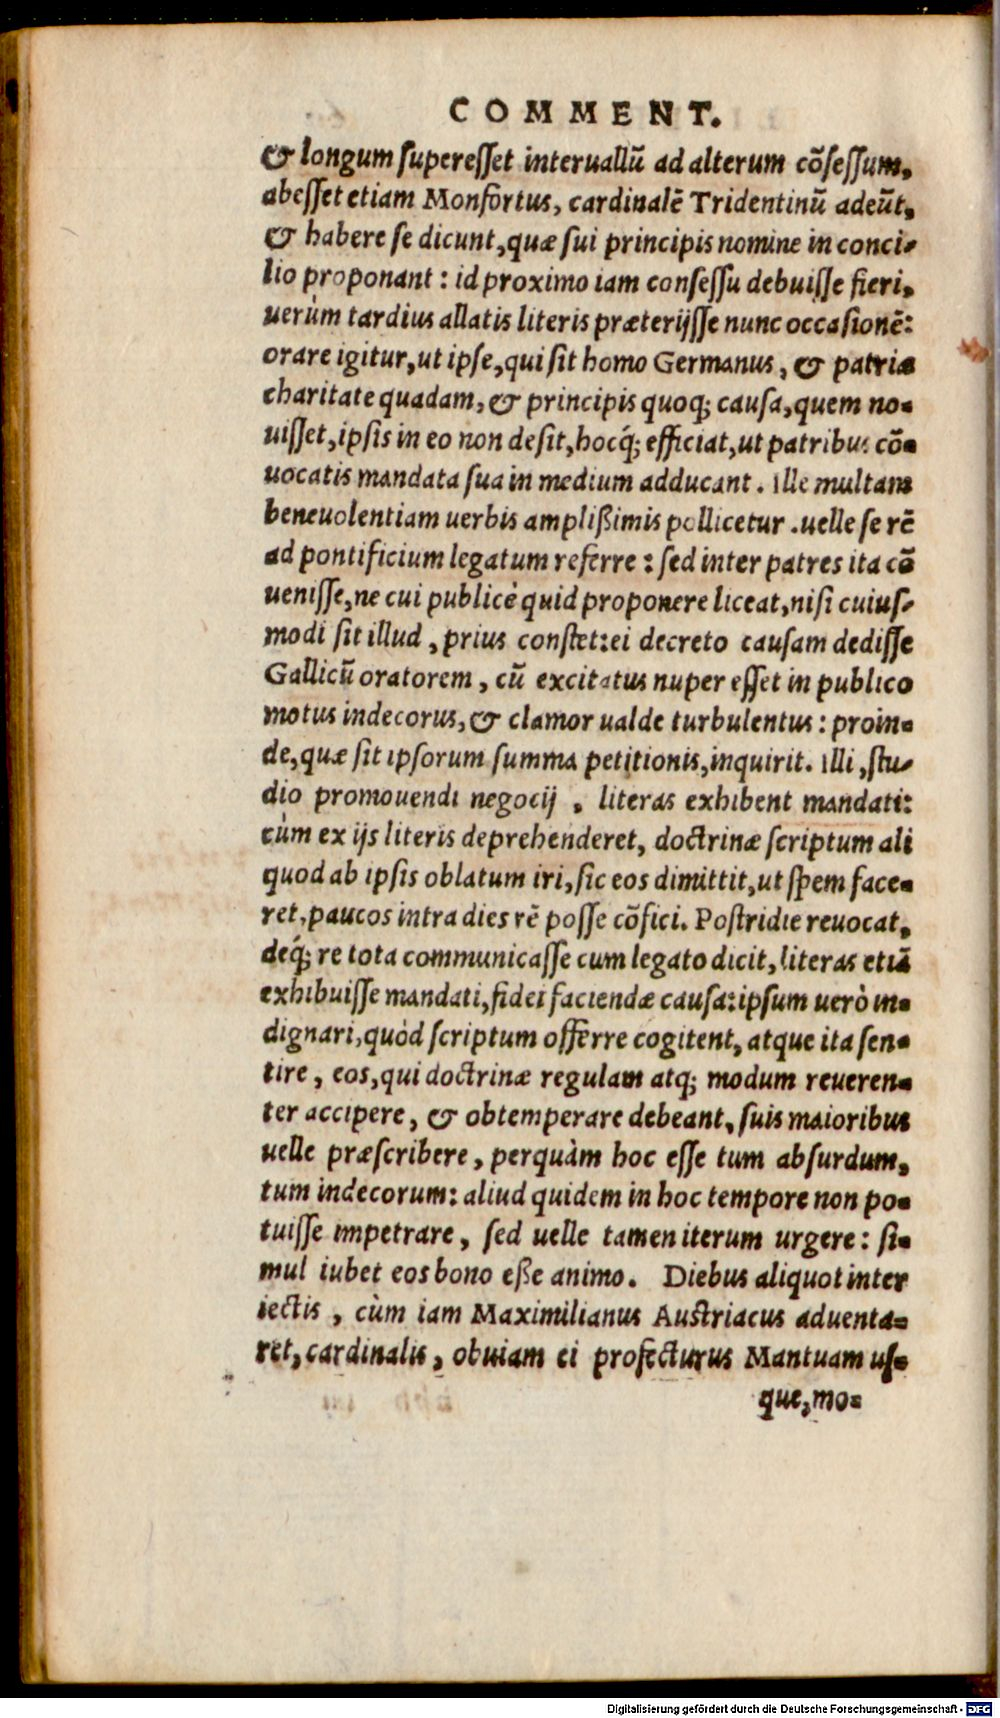 COMMENT.
& longum superesset interuallũ ad alterum cõsessum,
abesset etiam Monfortus, cardinalẽ Tridentinũ adeũt,
& habere se dicunt, quæ sui principis nomine in conci-
lio proponant: id proximo iam consessu debuisse fieri,
uerùm tardius allatis literis præterijsse nunc occasionẽ:
orare igitur, ut ipse, qui sit homo Germanus, & patriæ
charitate quadam, & principis quoq; causa, quem no-
uisset, ipsis in eo non desit, hocq́; efficiat, ut patribus cõ-
uocatis mandata sua in medium adducant. Ille multam
beneuolentiam uerbis amplißimis pollicetur. uelle se rẽ
ad pontificium legatum referre: sed inter patres ita cõ
uenisse, ne cui publicè quid proponere liceat, nisi cuius-
modi sit illud, prius constet: ei decreto causam dedisse
Gallicũ oratorem, cũ excitatus nuper esset in publico
motus indecorus, & clamor ualde turbulentus: proin-
de, quæ sit ipsorum summa petitionis, inquirit. Illi, stu-
dio promouendi negocij, literas exhibent mandati:
cùm ex ijs literis deprehenderet, doctrinæ scriptum ali
quod ab ipsis oblatum iri, sic eos dimittit, ut spem face-
ret, paucos intra dies rẽ posse cõfici. Postridie reuocat,
deq́; re tota communicasse cum legato dicit, literas etiã
exhibuisse mandati, fidei faciendæ causa: ipsum uerò in-
dignari, quòd scriptum offerre cogitent, atque ita sen-
tire, eos, qui doctrinæ regulam atq; modum reueren-
ter accipere, & obtemperare debeant, suis maioribus
uelle præscribere, perquàm hoc esse tum absurdum,
tum indecorum: aliud quidem in hoc tempore non po-
tuisse impetrare, sed uelle tamen iterum urgere: si-
mul iubet eos bono eße animo. Diebus aliquot inter
iectis, cùm iam Maximilianus Austriacus aduenta-
ret, cardinalis, obuiam ei profecturus Mantuam us-
que, mo-
Digitalisierung gefördert durch die Deutsche Forschungsgemeinschaft - DFG